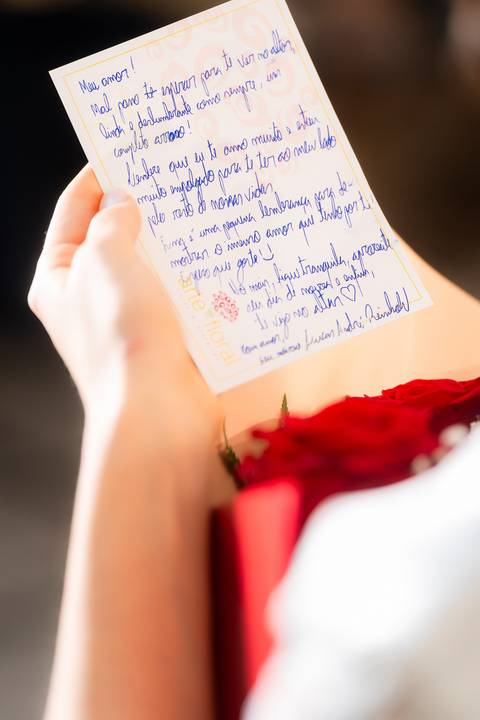 Meu amor!
Mal posso esperar para te ver no altar,
linda e deslumbrante como sempre, um
completo arraso!
Lembre que eu te amo muito e estou
muito empolgado para te ter ao meu lado
pelo resto de nossas vidas.
Essa é uma pequena lembrança, para de-
monstrar o imenso amor que tenho por ti.
Espero que goste :)
No mais, fique tranquila, aproveite
seu dia de noiva e enfim,
te vejo no altar ♡
Com amor,
seu noivo Lucas André Reinhold
arte floral